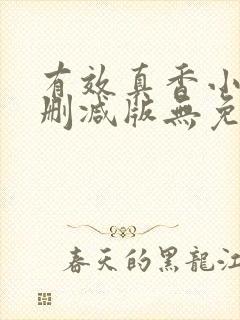 有效真香小
刪減版無免
春天的黑龍江